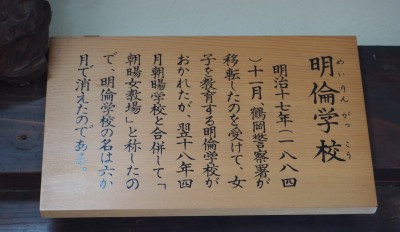 明倫学校
めいりんがっこう
明治十七年(一八八四
)十一月、鶴岡警察署が
移転したのを受けて、女
子を教育する明倫学校が
おかれたが、翌十八年四
月朝暘学校と合併して「
朝暘女教場」と称したの
で、明倫学校の名は六か
月で消えたのである。